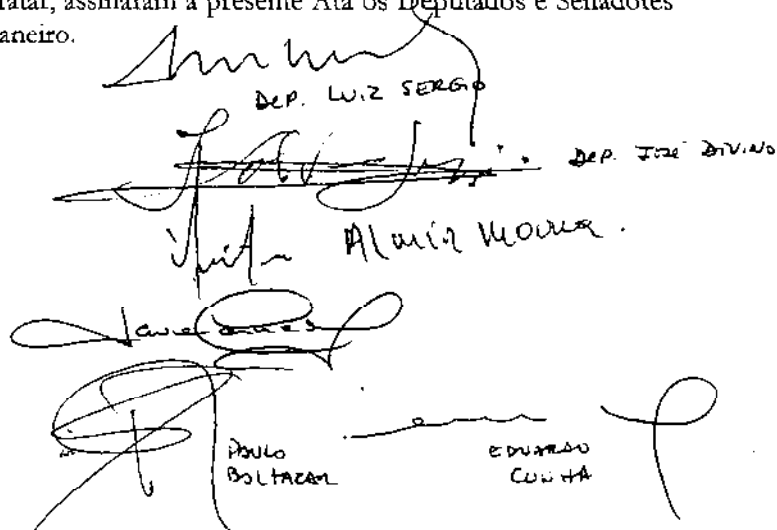 ratar, assinaram a presente Ata os Deputados e Senadores
aneiro.
DEP. LUIZ SERGIO
DEP. JOSÉ DIVINO
Almir Moura.
PAULO
BALTAZAR
EDUARDO
CUNHA